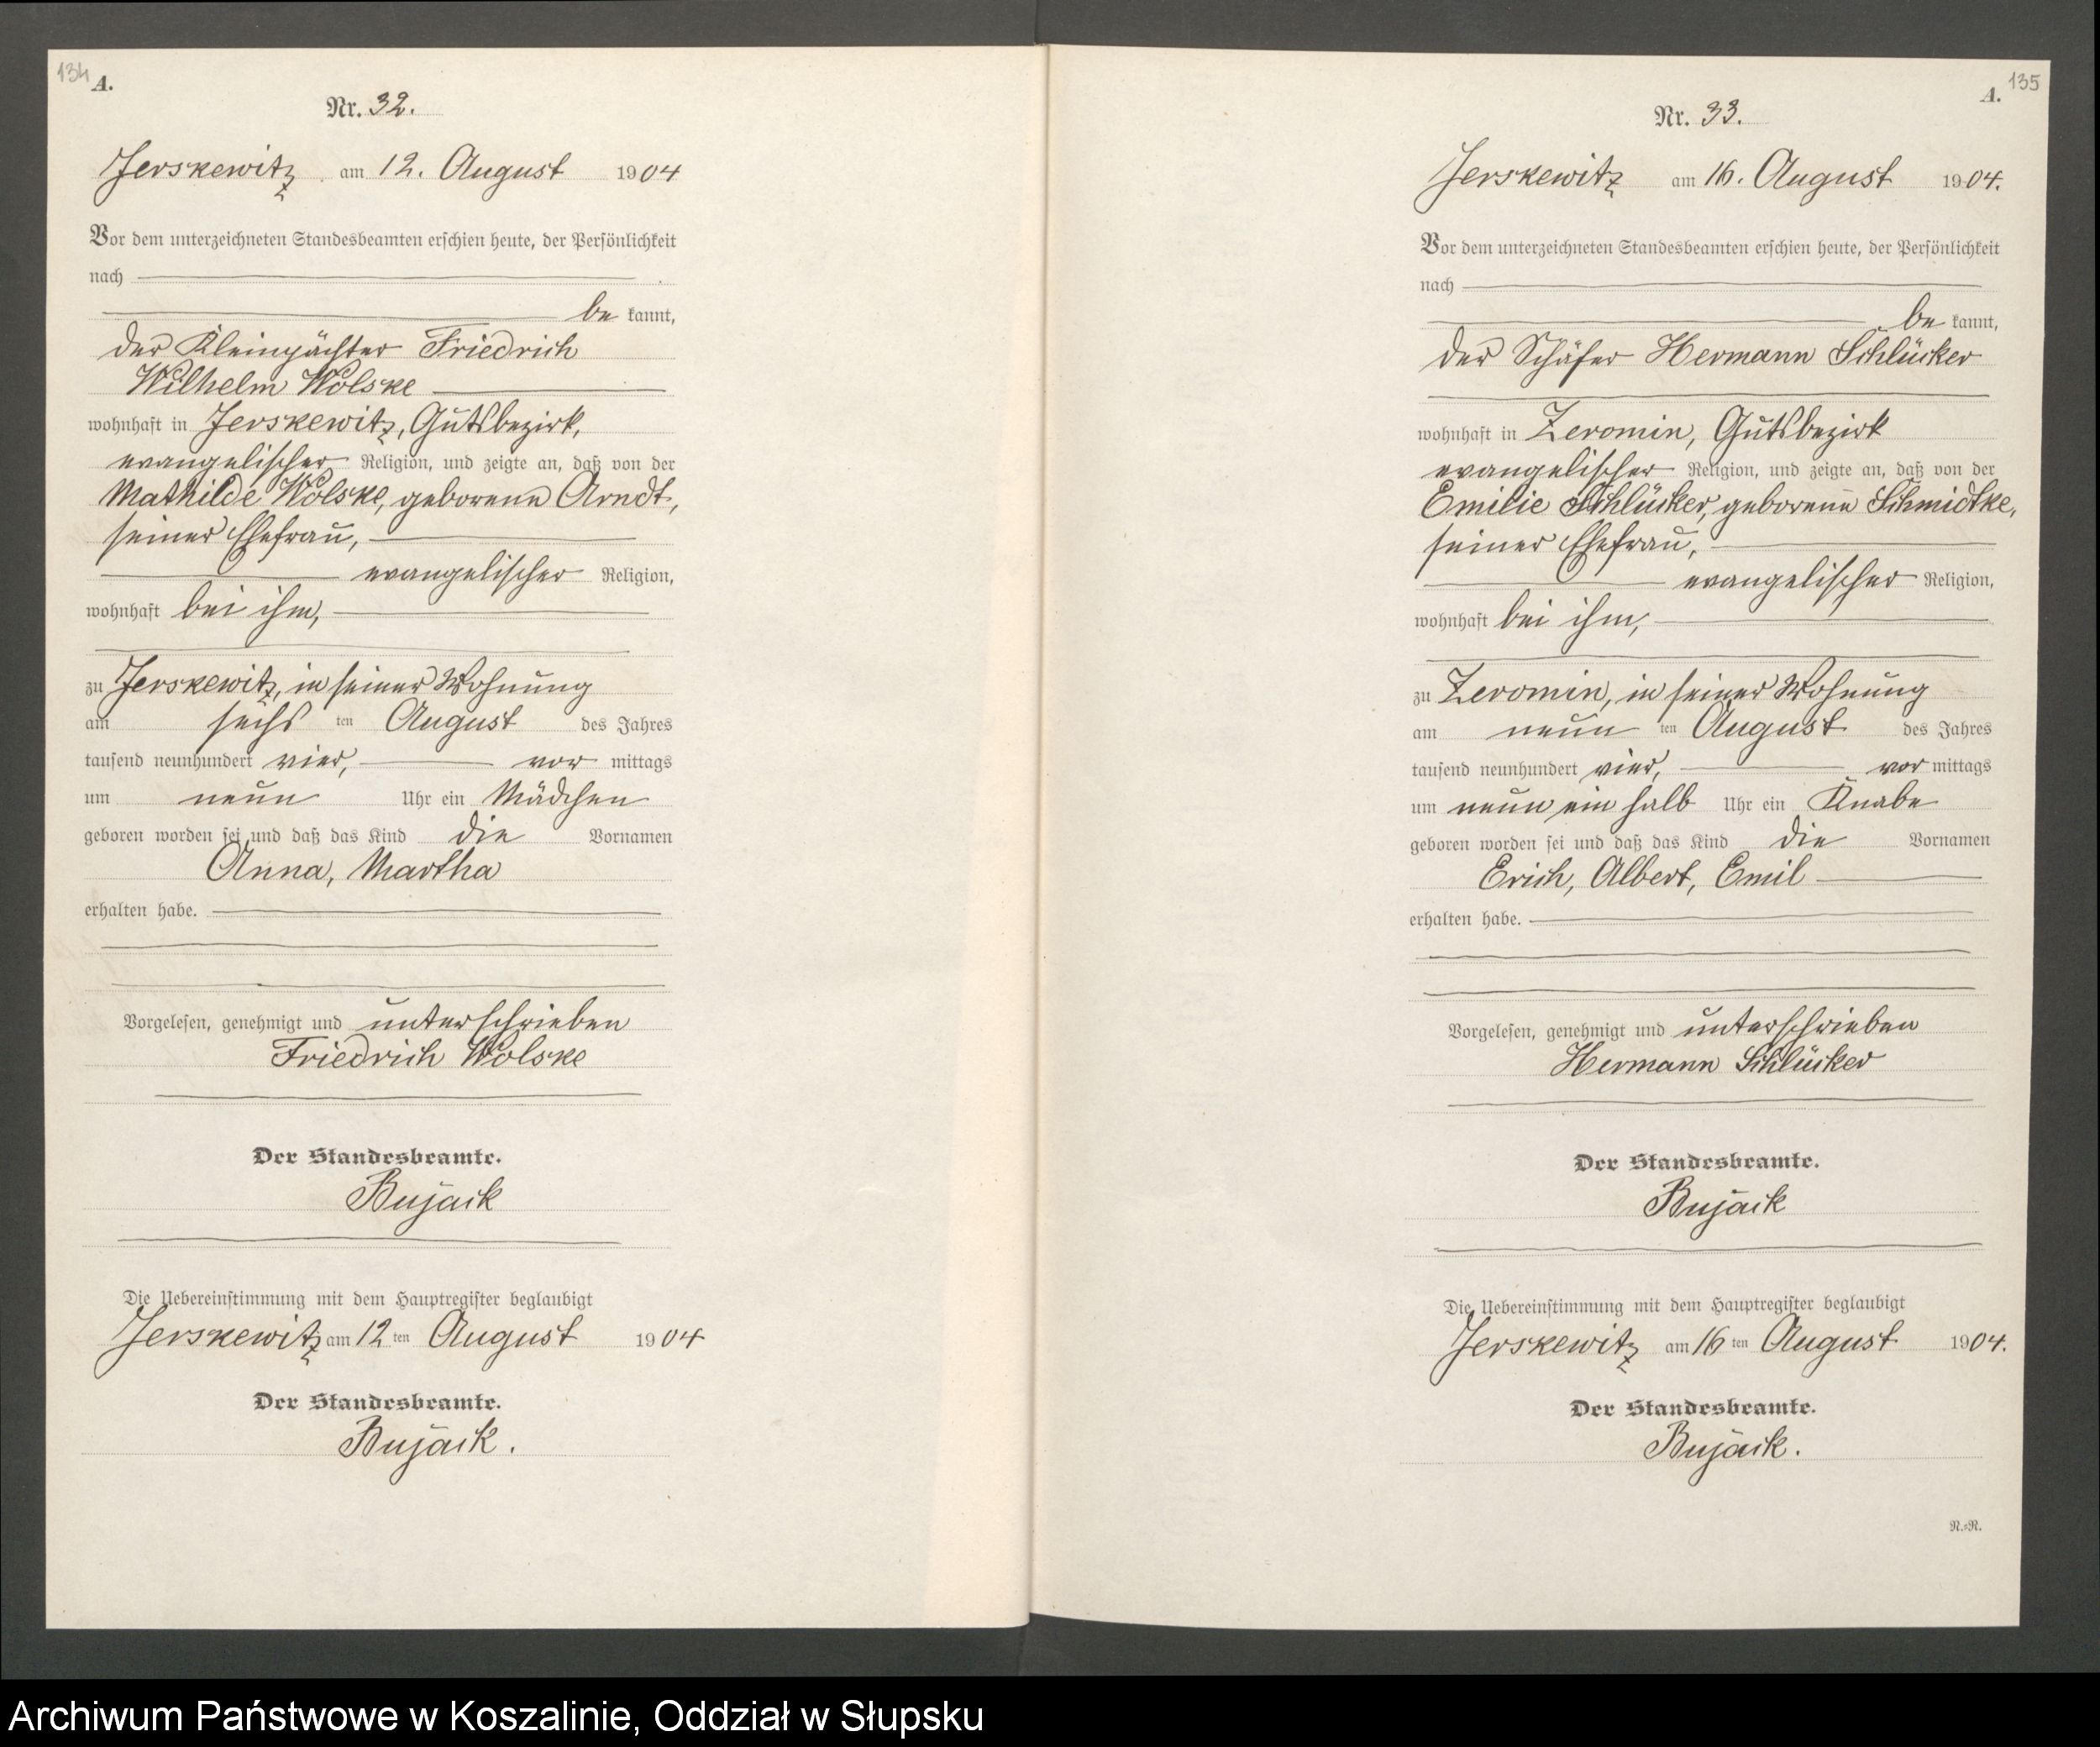 134
A.
Nr. 32.
Jerskewitz am 12. August 1904
Vor dem unterzeichneten Standesbeamten erschien heute, der Persönlichkeit
nach
be kannt,
der Kleinpächter Friedrich
Wilhelm Wolske
wohnhaft in Jerskewitz, Gutsbezirk,
evangelischer Religion, und zeigte an, daß von der
Mathilde Wolske, geborene Arndt,
seiner Ehefrau,
evangelischer Religion,
wohnhaft bei ihm,
zu Jerskewitz, in seiner Wohnung
am sechs ten August des Jahres
tausend neunhundert vier, vor mittags
um neun Uhr ein Mädchen
geboren worden sei und daß das Kind die Vornamen
Anna, Martha
erhalten habe.
Vorgelesen, genehmigt und unterschrieben
Friedrich Wolske
Der Standesbeamte.
Bujack
Die Uebereinstimmung mit dem Hauptregister beglaubigt
Jerskewitz am 12 ten August 1904
Der Standesbeamte.
Bujack.
135
A.
Nr. 33.
Jerskewitz am 16. August 1904.
Vor dem unterzeichneten Standesbeamten erschien heute, der Persönlichkeit
nach
be kannt,
der Schäfer Hermann Schlücker
wohnhaft in Zeromin, Gutsbezirk
evangelischer Religion, und zeigte an, daß von der
Emilie Schlücker, geborene Schmidtke,
seiner Ehefrau,
evangelischer Religion,
wohnhaft bei ihm,
zu Zeromin, in seiner Wohnung
am neun ten August des Jahres
tausend neunhundert vier, vor mittags
um neun ein halb Uhr ein Knabe
geboren worden sei und daß das Kind die Vornamen
Erich, Albert, Emil
erhalten habe.
Vorgelesen, genehmigt und unterschrieben
Hermann Schlücker
Der Standesbeamte.
Bujack
Die Uebereinstimmung mit dem Hauptregister beglaubigt
Jerskewitz am 16 ten August 1904.
Der Standesbeamte.
Bujack.
R.=R.
Archiwum Państwowe w Koszalinie, Oddział w Słupsku